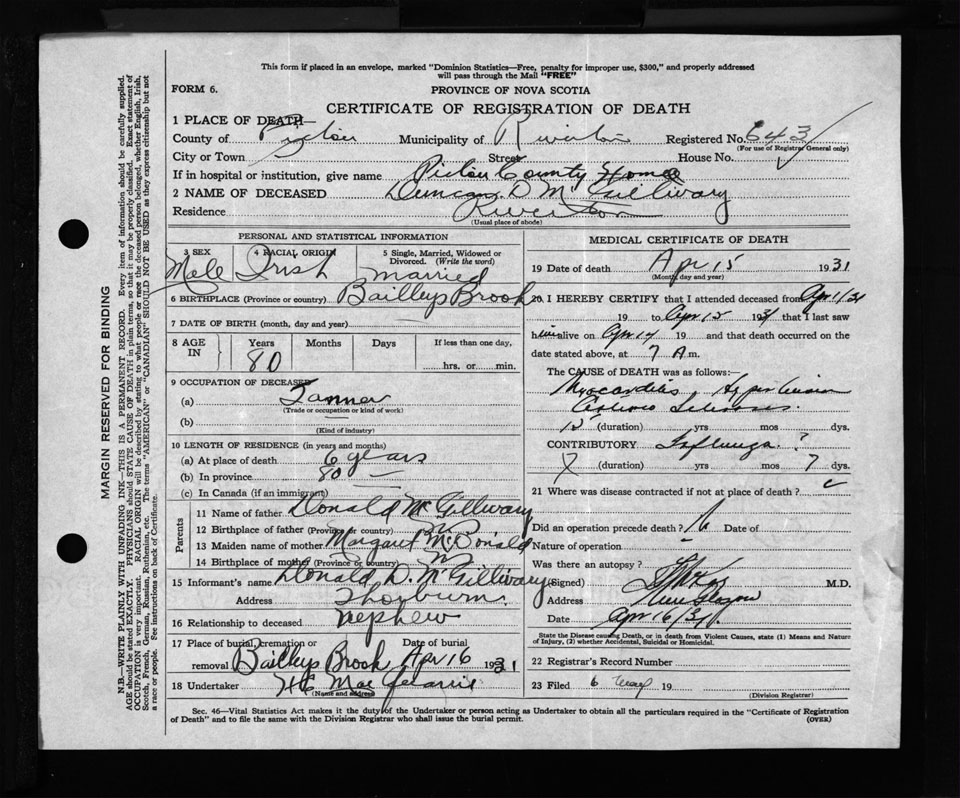 This form if placed in an envelope, marked "Dominion Statistics—Free, penalty for improper use, $300," and properly addressed
will pass through the Mail "FREE"
FORM 6. PROVINCE OF NOVA SCOTIA
CERTIFICATE OF REGISTRATION OF DEATH
1 PLACE OF DEATH—
County of Pictou Municipality of Riverton Registered No. 643
(For use of Registrar General only)
City or Town Street House No.
If in hospital or institution, give name Pictou County Home
2 NAME OF DECEASED Duncan D McGillivary
Residence Riverton
(Usual place of abode)
PERSONAL AND STATISTICAL INFORMATION
3 SEX 4 RACIAL ORIGIN 5 Single, Married, Widowed or Divorced. (Write the word)
Male Irish married
6 BIRTHPLACE (Province or country) Baileys Brook
7 DATE OF BIRTH (month, day and year)
8 AGE IN Years Months Days If less than one day,
80 hrs. or min.
9 OCCUPATION OF DECEASED
(a) Tanner
(Trade or occupation or kind of work)
(b)
(Kind of industry)
10 LENGTH OF RESIDENCE (in years and months)
(a) At place of death 6 years
(b) In province 80 —
(c) In Canada (if an immigrant)
Parents
11 Name of father Donald McGillivary
12 Birthplace of father (Province or country)
13 Maiden name of mother Margaret McDonald
14 Birthplace of mother (Province or country)
15 Informant's name Donald D. McGillivary
Address Thorburn
16 Relationship to deceased nephew
17 Place of burial, cremation or removal Date of burial
Baileys Brook Apr 16 1931
18 Undertaker
(Name and address)
MEDICAL CERTIFICATE OF DEATH
19 Date of death Apr 15 1931
(Month, day and year)
20 I HEREBY CERTIFY that I attended deceased from Apr 1/31
19 to Apr 15 1931 that I last saw
him alive on Apr 14 19 and that death occurred on the
date stated above, at 7 A.m.
The CAUSE OF DEATH was as follows:—
Myocarditis Hypertension
(duration) yrs mos dys.
CONTRIBUTORY Influenza ?
(duration) yrs mos 7 dys.
21 Where was disease contracted if not at place of death?
Did an operation precede death? Date of
Nature of operation
Was there an autopsy?
(Signed) M.D.
Address New Glasgow
Date Apr 16/31
State the Disease causing Death, or in death from Violent Causes, state (1) Means and Nature
of Injury, (2) whether Accidental, Suicidal or Homicidal.
22 Registrar's Record Number
23 Filed 6 May 19
(Division Registrar)
Sec. 46—Vital Statistics Act makes it the duty of the Undertaker or person acting as Undertaker to obtain all the particulars required in the "Certificate of Registration
of Death" and to file the same with the Division Registrar who shall issue the burial permit. (OVER)
MARGIN RESERVED FOR BINDING
N.B.—WRITE PLAINLY WITH UNFADING INK—THIS IS A PERMANENT RECORD. Every item of information should be carefully supplied.
AGE should be stated EXACTLY. PHYSICIANS should STATE CAUSE OF DEATH in plain terms, so that it may be properly classified. Exact statement of
OCCUPATION is very important. RACIAL ORIGIN will be described by stating to what people or race the deceased person belonged, whether English, Irish,
Scotch, French, German, Russian, Ruthenian, etc. The terms "AMERICAN" or "CANADIAN" SHOULD NOT BE USED as they express citizenship but not
a race or people. See instructions on back of Certificate.